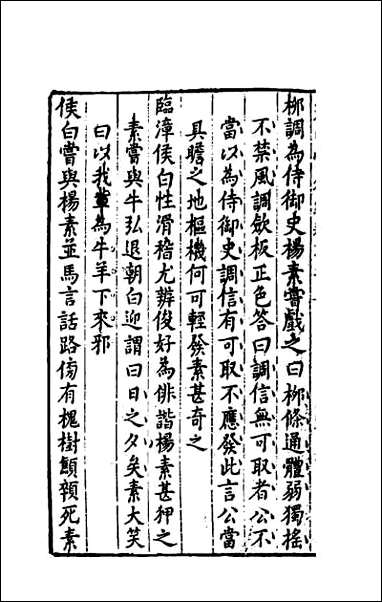 柳調為侍御史楊素嘗戲之曰柳條通體弱獨搖
不禁風調斂板正色答曰調信無可取者公不
當以為侍御史調信有可取不應發此言公當
具瞻之地樞機何可輕發素甚奇之
臨漳侯白性滑稽尤辨俊好為俳諧楊素甚狎之
素嘗與牛弘退朝白迎謂曰日之夕矣素大笑
曰以我輩為牛羊下來邪
侯白嘗與楊素並馬言話路傍有槐樹顦顇死素